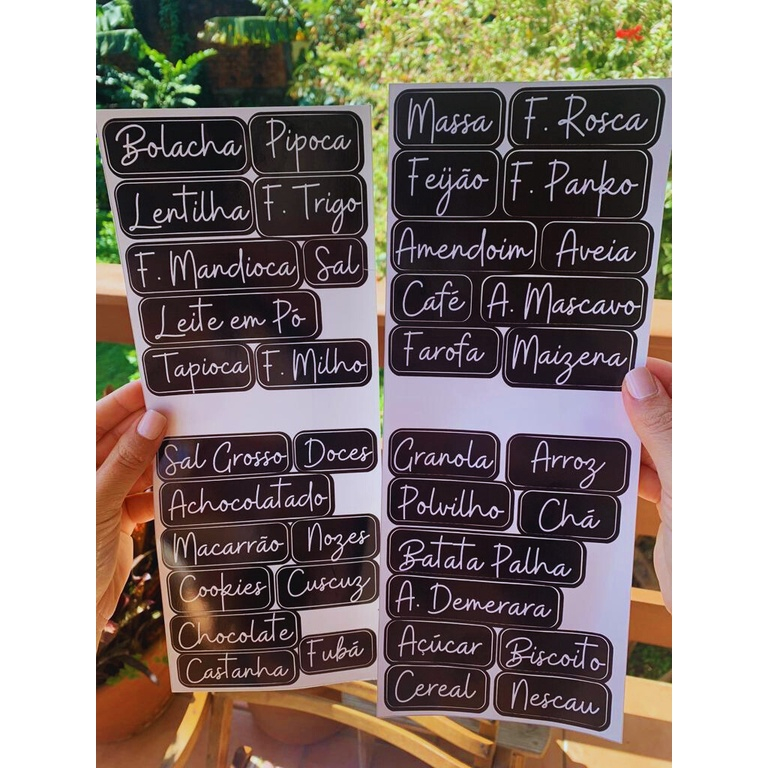 Bolacha Pipoca
Lentilha F. Trigo
F. Mandioca Sal
Leite em Pó
Tapioca F. Milho
Sal Grosso Doces
Achocolatado
Macarrão Nozes
Cookies Cuscuz
Chocolate
Castanha Fubá
Massa F. Rosca
Feijão F. Panko
Amendoim Aveia
Café A. Mascavo
Farofa Maizena
Granola Arroz
Polvilho Chá
Batata Palha
A. Demerara
Açúcar Biscoito
Cereal Nescau